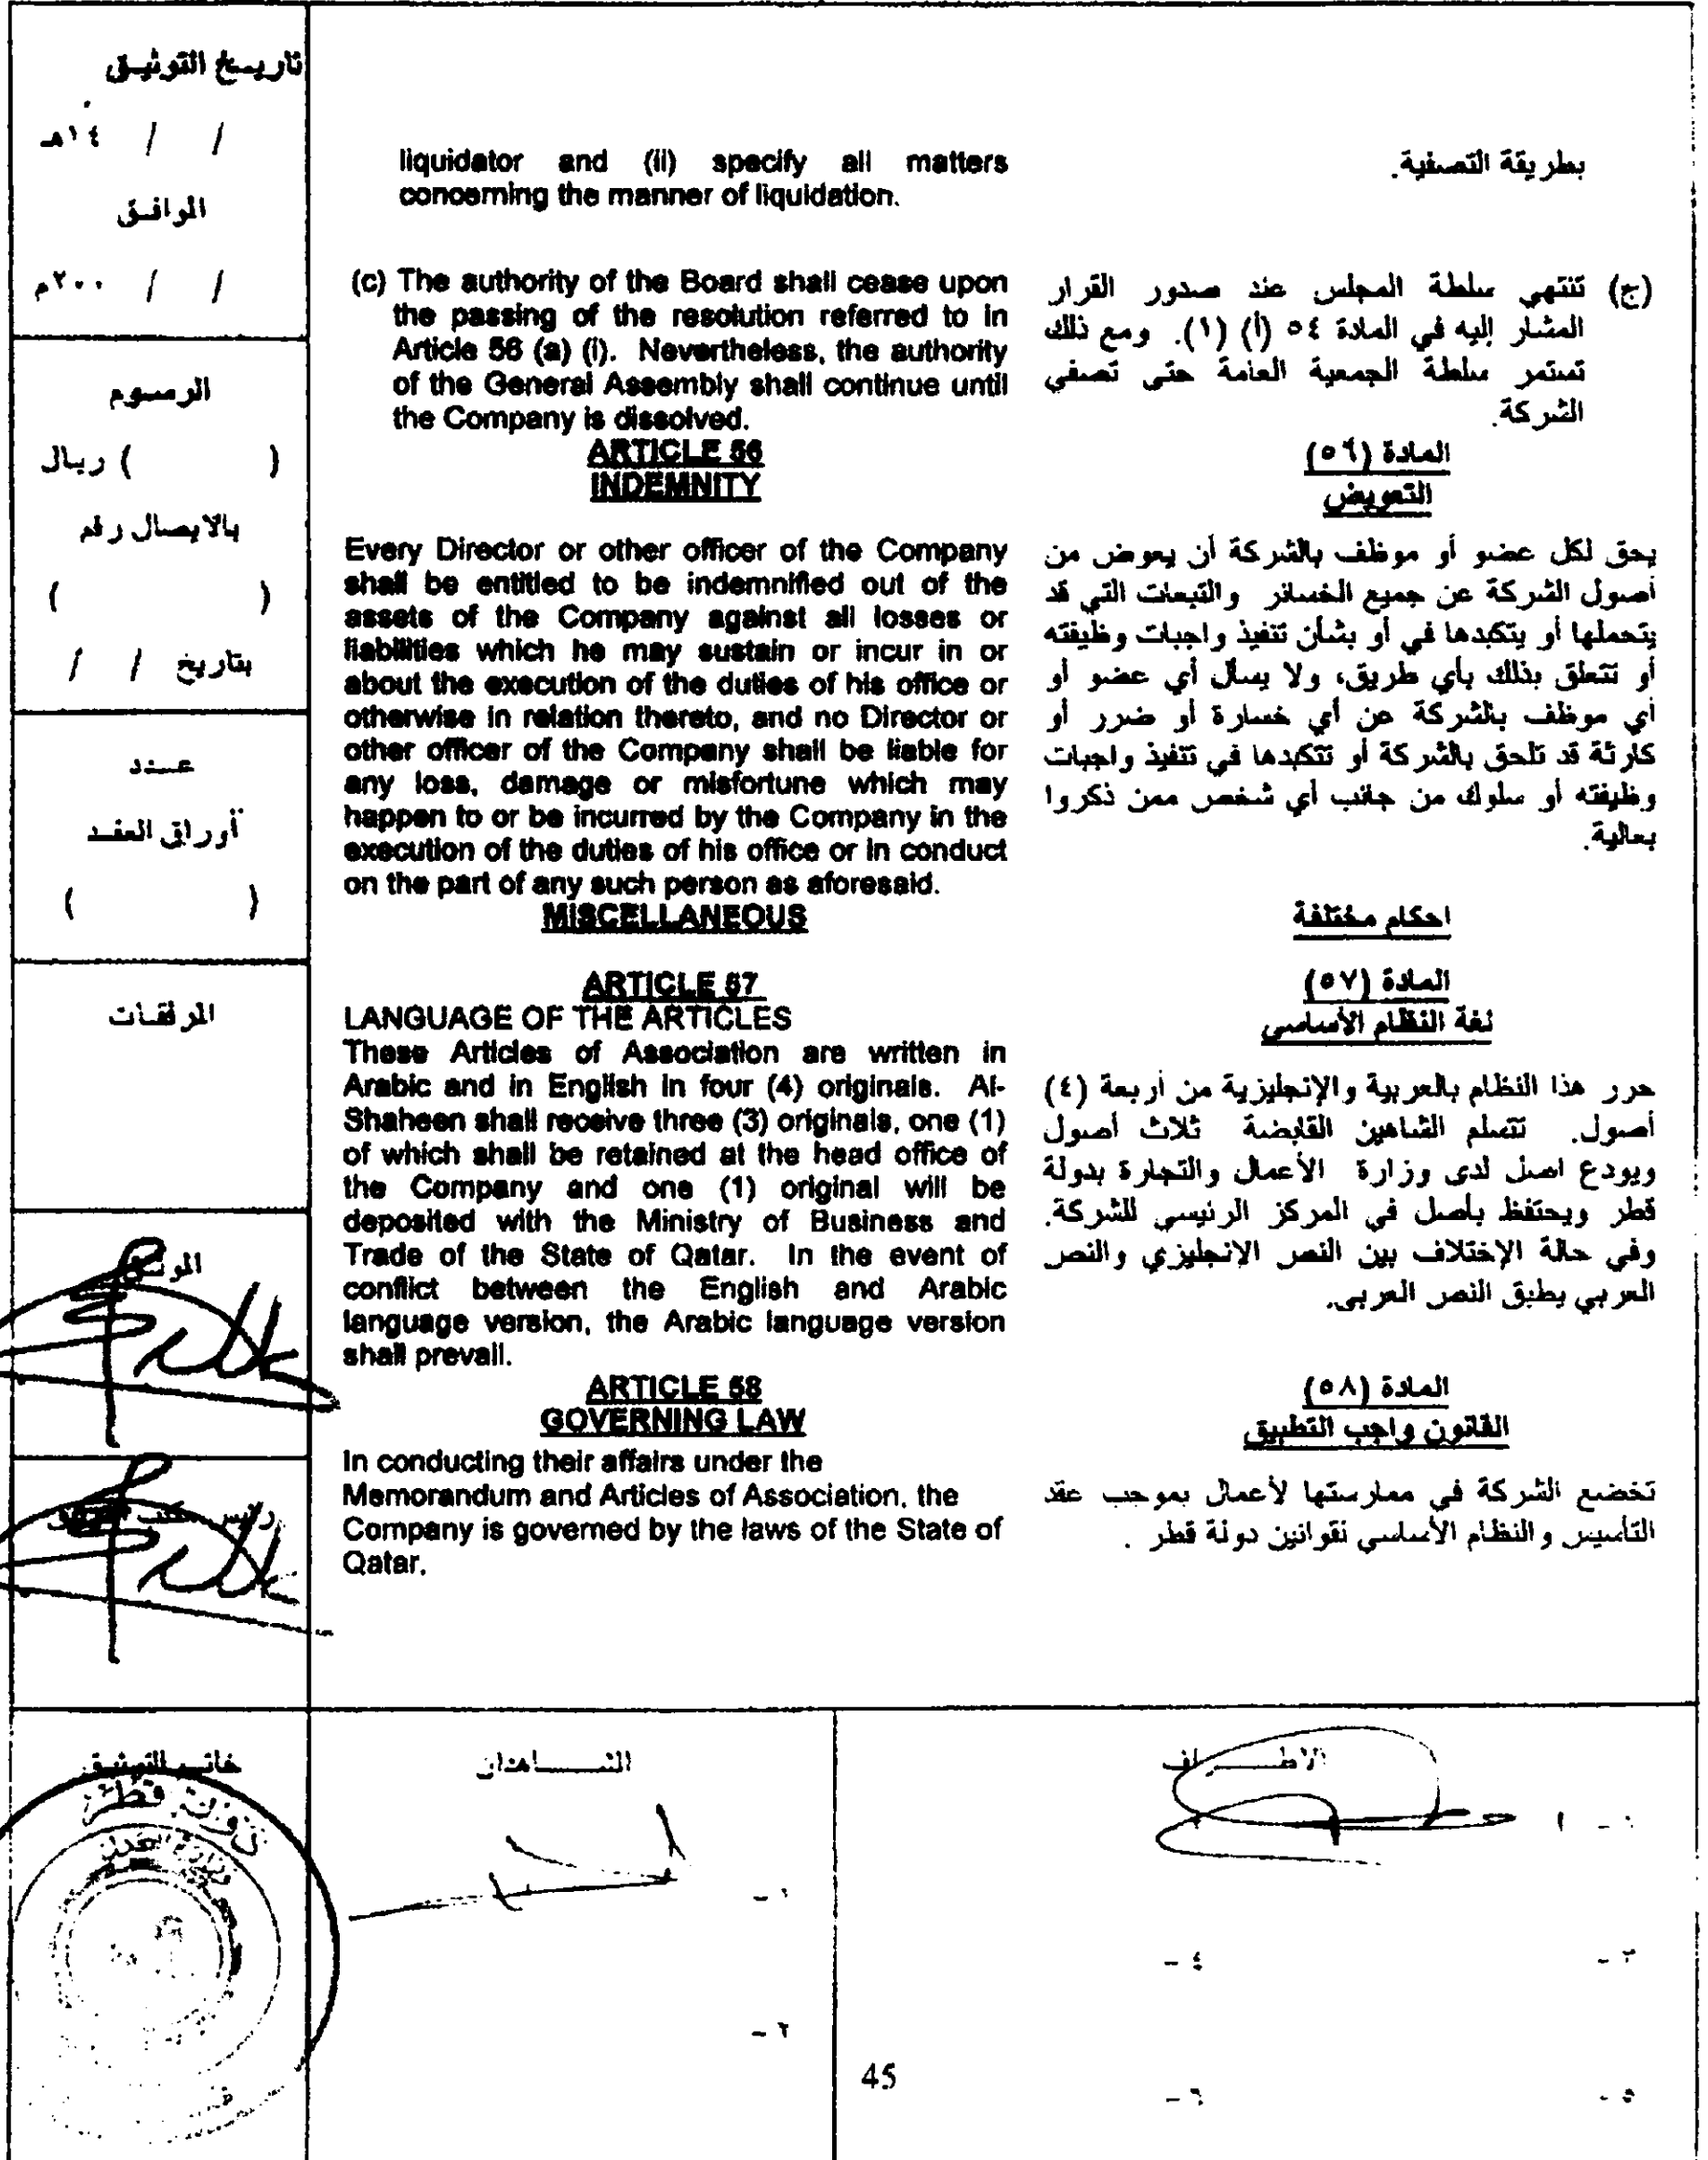 تاريخ التوثيق
/ / ١٤هـ
الموافق
/ / ٢٠٠م
الرسوم
( ) ريال
بالايصال رقم
( )
بتاريخ / /
عدد
أوراق العقد
( )
المرفقات
liquidator and (ii) specify all matters
concerning the manner of liquidation.
(c) The authority of the Board shall cease upon
the passing of the resolution referred to in
Article 56 (a) (i). Nevertheless, the authority
of the General Assembly shall continue until
the Company is dissolved.
ARTICLE 56
INDEMNITY
Every Director or other officer of the Company
shall be entitled to be indemnified out of the
assets of the Company against all losses or
liabilities which he may sustain or incur in or
about the execution of the duties of his office or
otherwise in relation thereto, and no Director or
other officer of the Company shall be liable for
any loss, damage or misfortune which may
happen to or be incurred by the Company in the
execution of the duties of his office or in conduct
on the part of any such person as aforesaid.
MISCELLANEOUS
ARTICLE 57
LANGUAGE OF THE ARTICLES
These Articles of Association are written in
Arabic and in English in four (4) originals. Al-
Shaheen shall receive three (3) originals, one (1)
of which shall be retained at the head office of
the Company and one (1) original will be
deposited with the Ministry of Business and
Trade of the State of Qatar. In the event of
conflict between the English and Arabic
language version, the Arabic language version
shall prevail.
ARTICLE 58
GOVERNING LAW
In conducting their affairs under the
Memorandum and Articles of Association, the
Company is governed by the laws of the State of
Qatar.
بطريقة التصفية.
(ج) تنتهي سلطة المجلس عند صدور القرار
المشار إليه في المادة ٥٤ (أ) (١). ومع ذلك
تستمر سلطة الجمعية العامة حتى تصفي
الشركة.
المادة (٥٦)
التعويض
يحق لكل عضو أو موظف بالشركة أن يعوض من
أصول الشركة عن جميع الخسائر والتبعات التي قد
يتحملها أو يتكبدها في أو بشأن تنفيذ واجبات وظيفته
أو تتعلق بذلك بأي طريق، ولا يسأل أي عضو أو
أي موظف بالشركة عن أي خسارة أو ضرر أو
كارثة قد تلحق بالشركة أو تتكبدها في تنفيذ واجبات
وظيفته أو سلوك من جانب أي شخص ممن ذكروا
بعالية.
احكام مختلفة
المادة (٥٧)
لغة النظام الأساسي
حرر هذا النظام بالعربية والإنجليزية من أربعة (٤)
أصول. تتسلم الشاهين القابضة ثلاث أصول
ويودع اصل لدى وزارة الأعمال والتجارة بدولة
قطر ويحتفظ بأصل في المركز الرئيسي للشركة.
وفي حالة الإختلاف بين النص الإنجليزي والنص
العربي يطبق النص العربي.
المادة (٥٨)
القانون واجب التطبيق
تخضع الشركة في ممارستها لأعمال بموجب عقد
التأسيس والنظام الأساسي لقوانين دولة قطر .
خاتم التوثيق
دولة قطر
الشاهدان
١ -
٢ -
الاطراف
١ -
٣ -
٤ -
٥ -
٦ -
45